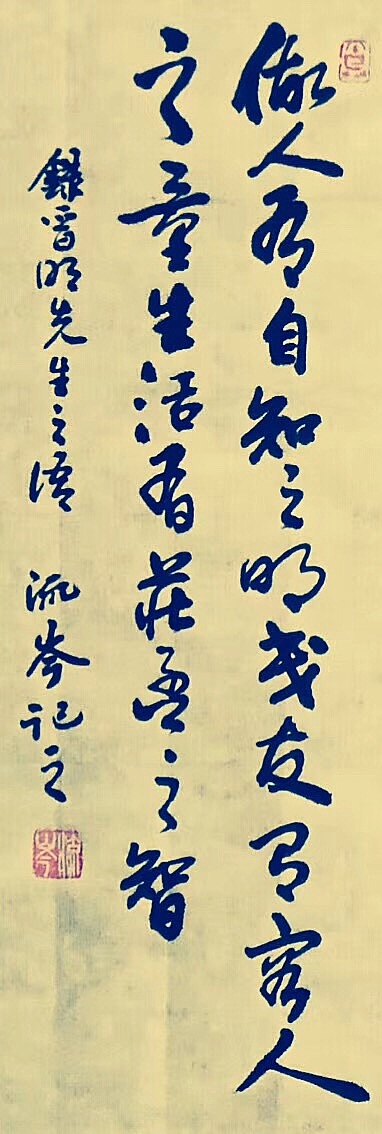 做人有自知之明交友有容人
之量生活有莊孟之智
錄晋明先生之语 流岑记之
流岑